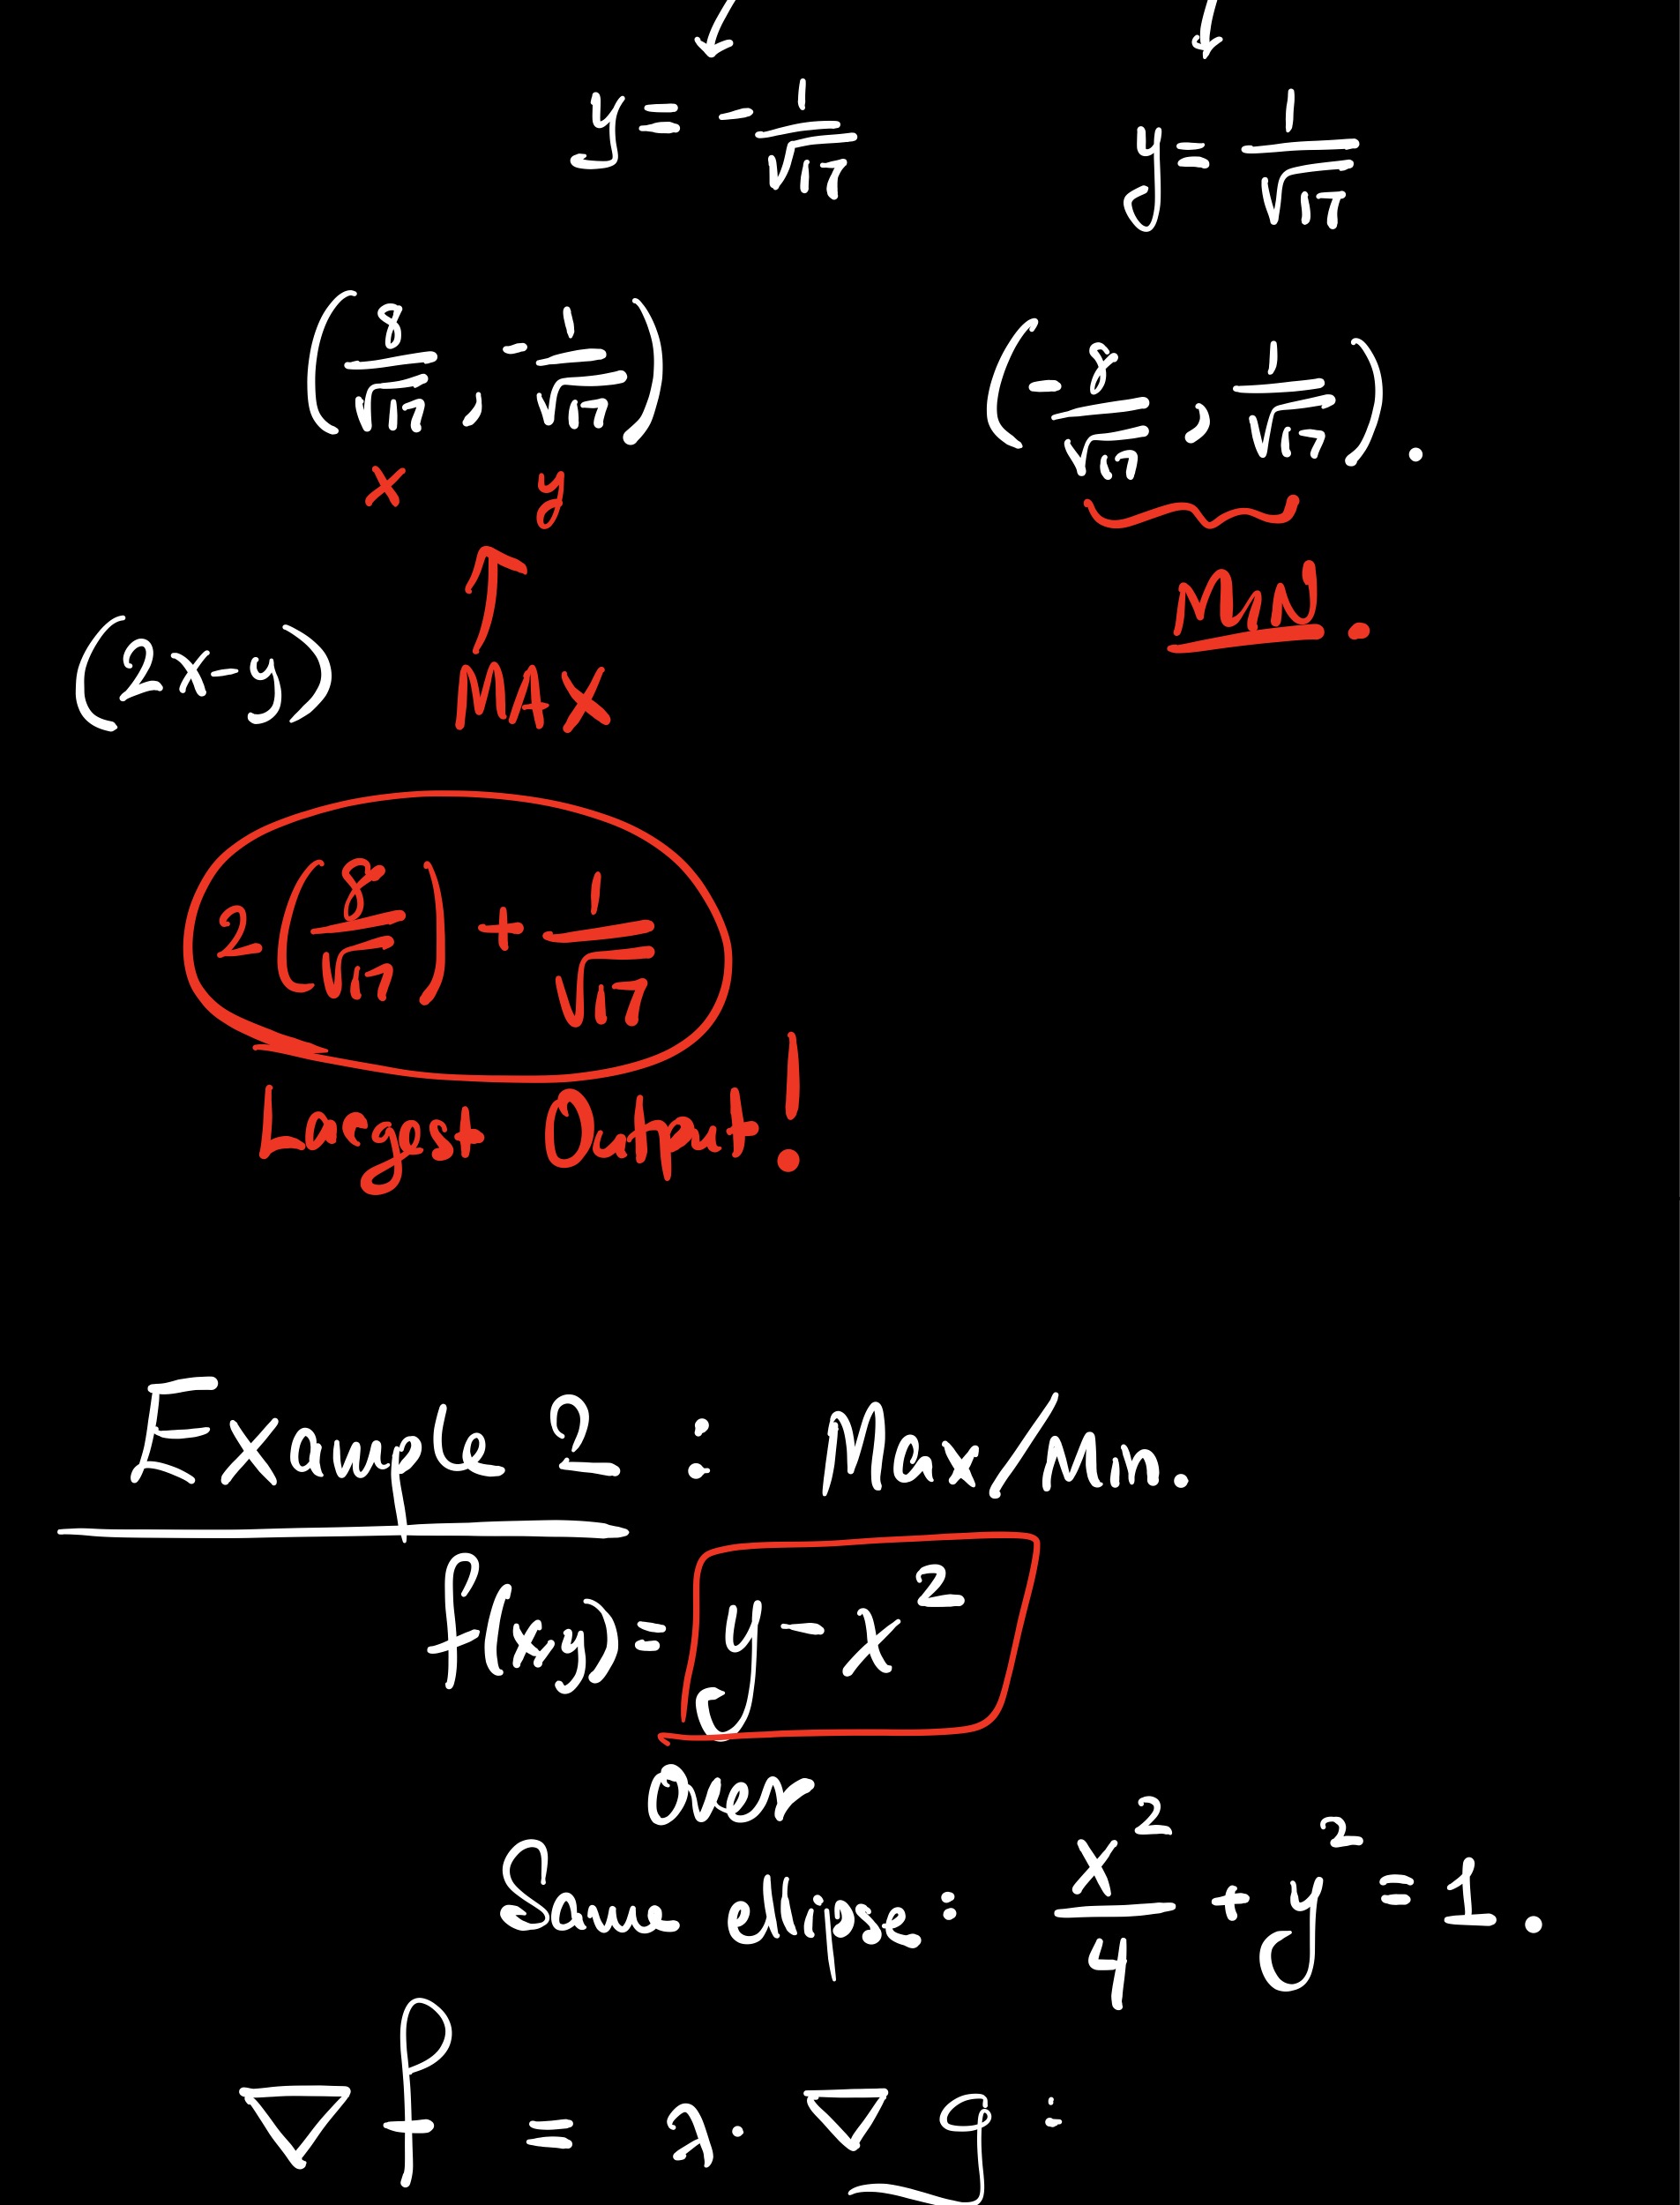 y = - 1/√17    y = 1/√17
(8/√17, - 1/√17)    (- 8/√17, 1/√17).
x    y
MIN.
(2x-y)    MAX
2(8/√17) + 1/√17
Largest Output!
Example 2 : Max/Min.
f(x,y) = y - x²
over
Same ellipse: x²/4 + y² = 1.
∇f = λ · ∇g :